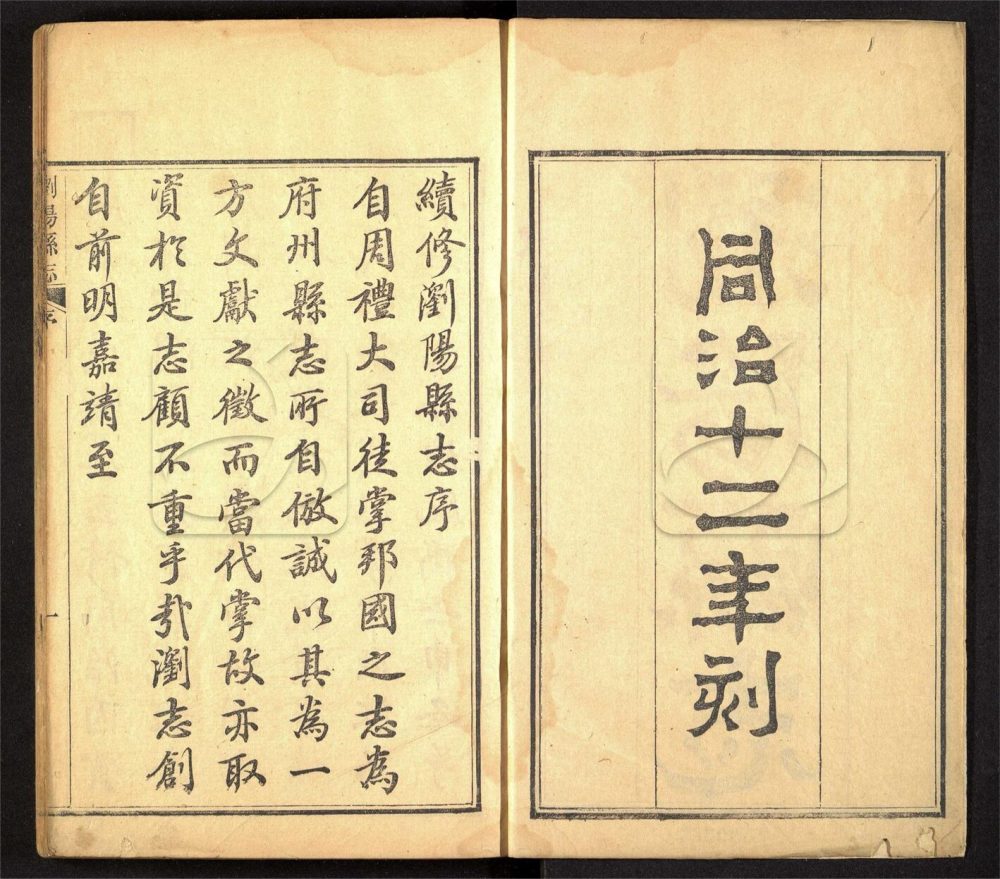 同治十二年刻
續修瀏陽縣志序
自周禮大司徒掌邦國之志為
府州縣志所自倣誠以其為一
方文獻之徵而當代掌故亦取
資於是志顧不重乎哉瀏志創
自前明嘉靖至
瀏陽縣志
序
一